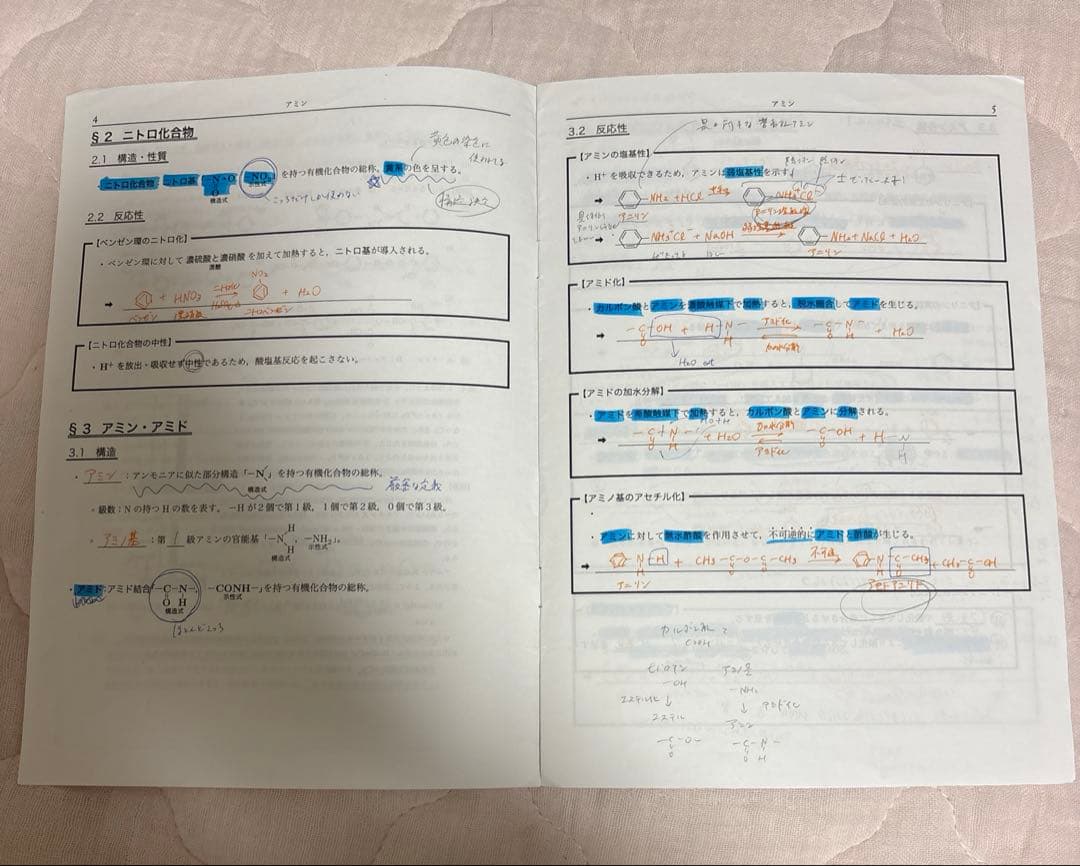 4
アミン
§2 ニトロ化合物
黄色の染色に
2.1 構造・性質
ニトロ化合物:ニトロ基「-N→O, -NO₂」を持つ有機化合物の総称。黄系の色を呈する。
O
構造式
示性式
2.2 反応性
【ベンゼン環のニトロ化】
・ベンゼン環に対して 濃硫酸と濃硝酸 を加えて加熱すると,ニトロ基が導入される。
混酸
NO₂
→ + HNO₃ + H₂O
ベンゼン ニトロベンゼン
【ニトロ化合物の中性】
・H⁺ を放出・吸収せず中性であるため,酸塩基反応を起こさない。
§3 アミン・アミド
3.1 構造
・アミン:アンモニアに似た部分構造「-N」を持つ有機化合物の総称。
構造式
厳密な定義
・級数:N の持つ H の数を表す。-H が 2 個で第 1 級,1 個で第 2 級,0 個で第 3 級。
・アミノ基:第 1 級アミンの官能基「-N, -NH₂」。
H
H
構造式
示性式
・アミド:アミド結合「-C-N-, -CONH-」を持つ有機化合物の総称。
O H
構造式
示性式
ほとんどこっち
アミン
5
3.2 反応性
【アミンの塩基性】
・H⁺ を吸収できるため,アミンは弱塩基性を示す。
→ -NH₂ + HCl -NH₃⁺Cl⁻
アニリン アニリン塩酸塩
→ -NH₃⁺Cl⁻ + NaOH -NH₂ + NaCl + H₂O
アニリン
【アミド化】
・カルボン酸とアミンを濃酸触媒下で加熱すると,脱水縮合してアミドを生じる。
→ -C-OH + H-N- アミド化 -C-N- + H₂O
O H 加水分解 O H
H₂O out
【アミドの加水分解】
・アミドを希酸触媒下で加熱すると,カルボン酸とアミンに分解される。
→ -C-N- + H₂O 加水分解 -C-OH + H-N-
O H アミド化 O H
【アミノ基のアセチル化】
・
・アミンに対して無水酢酸を作用させて,不可逆的にアミドと酢酸が生じる。
→ -N-H + CH₃-C-O-C-CH₃ 不可逆 -N-C-CH₃ + CH₃-C-OH
H O O H O O
アニリン アセトアニリド
カルボン酸
COOH
ヒドロキシ アミノ基
-OH -NH₂
エステル化↓ ↓アミド化
エステル
-C-O- -C-N-
O O H